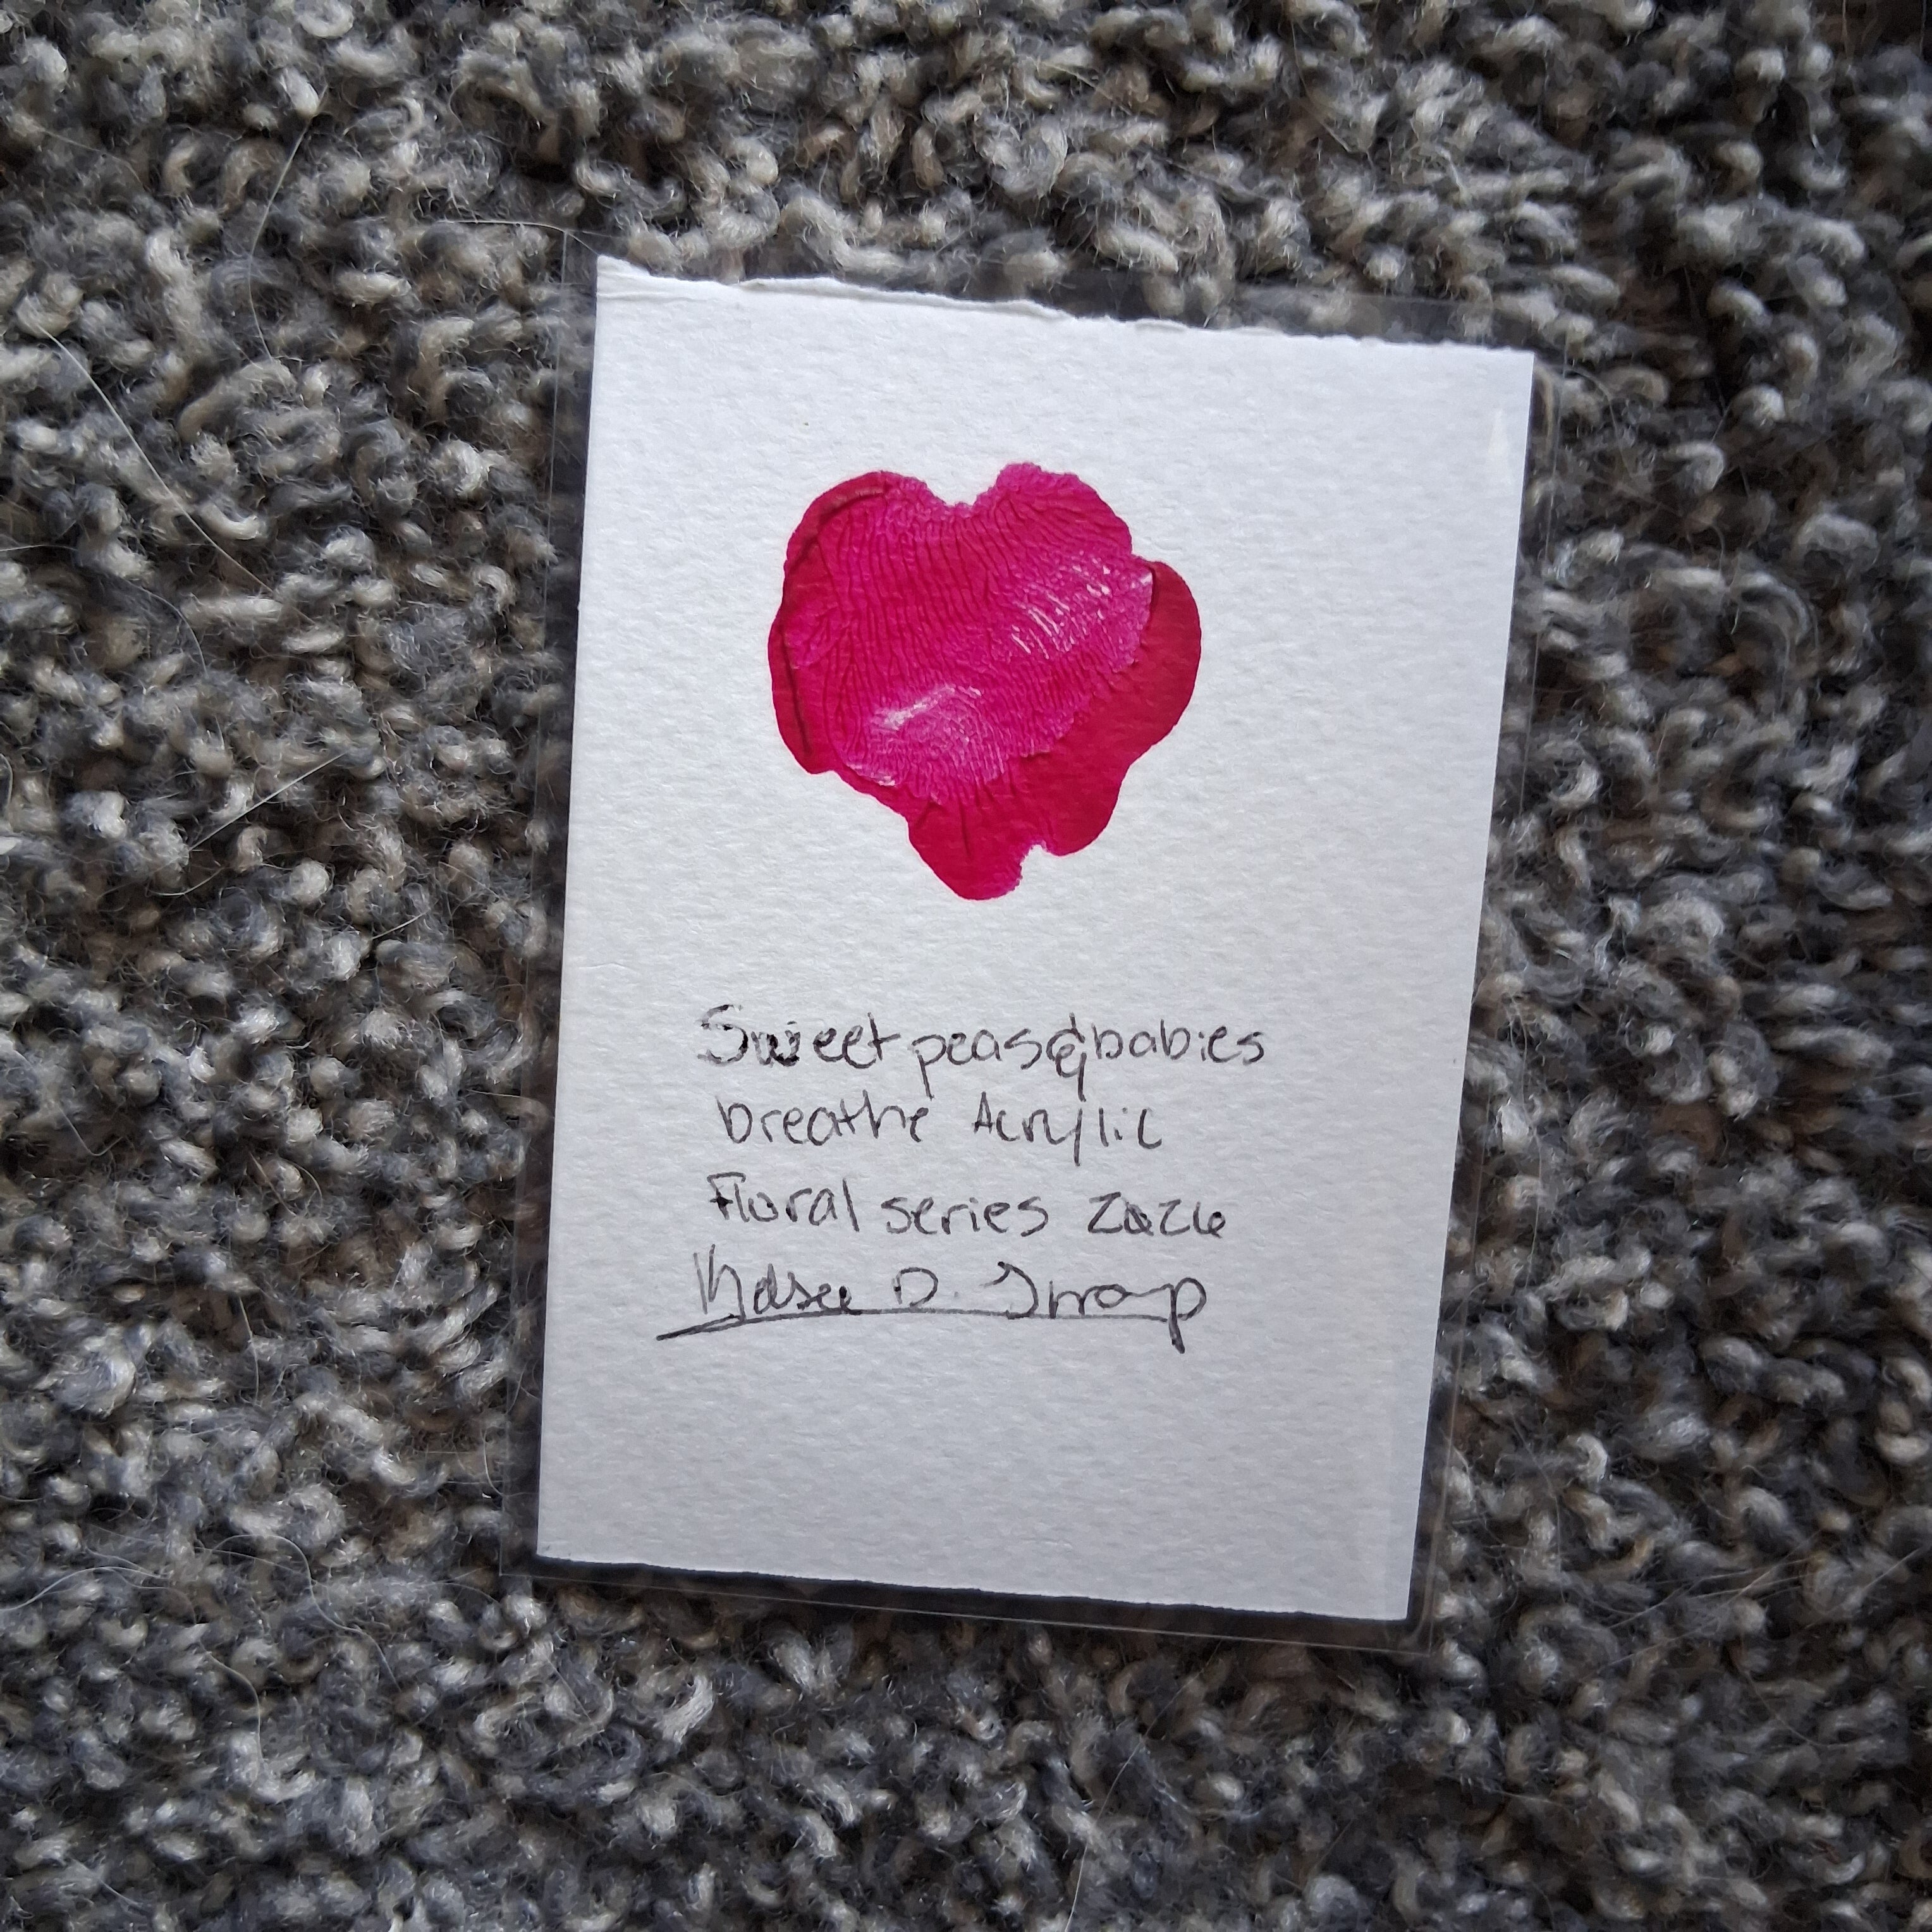 Sweet peas & babies
breathe Acrylic
Floral series 2026
D.